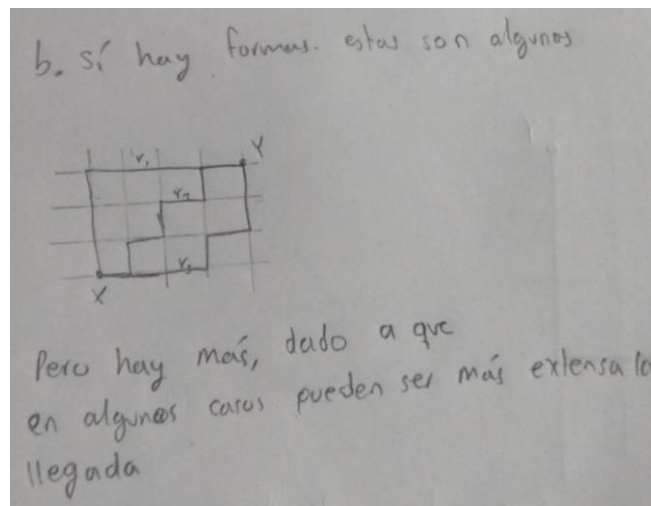 b. sí hay formas. estas son algunos
Y
r₁
r₂
r₃
X
Pero hay más, dado a que
en algunos casos pueden ser más extensa la
llegada